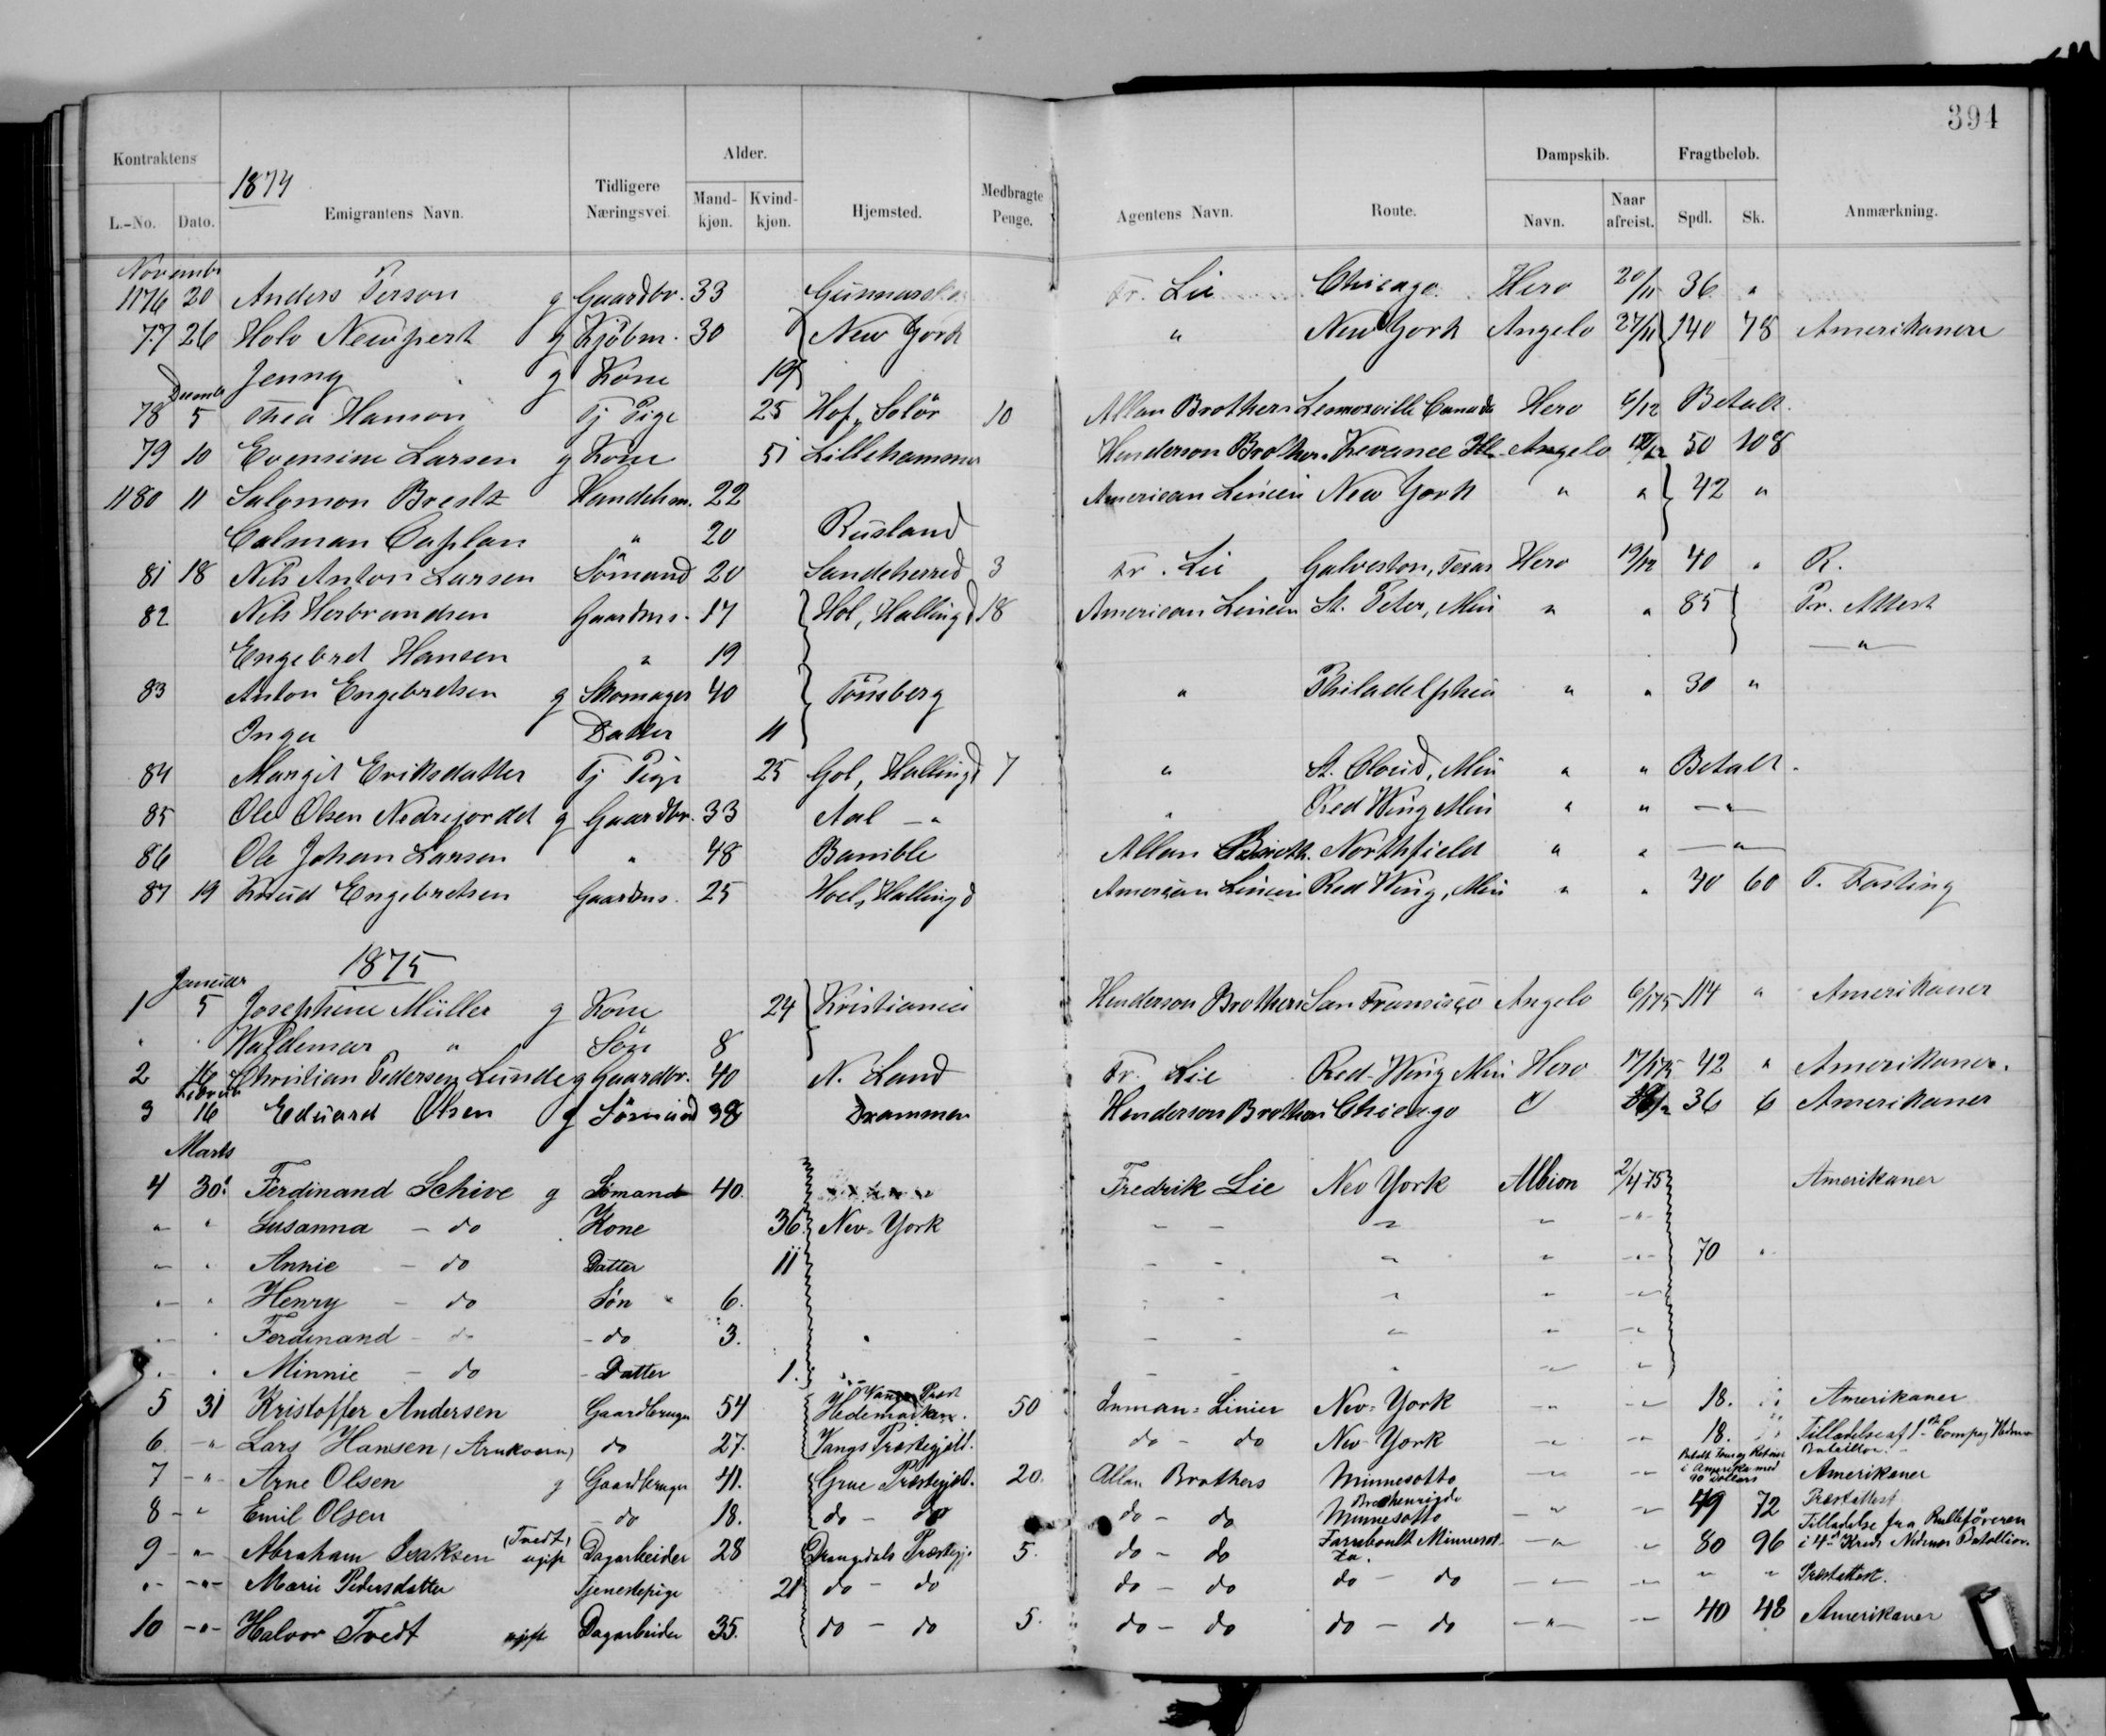 394
Kontraktens Alder. Dampskib. Fragtbeløb.
1874
L.-No. Dato. Emigrantens Navn. Tidligere Næringsvei. Mand-kjøn. Kvind-kjøn. Hjemsted. Medbragte Penge. Agentens Navn. Route. Navn. Naar afreist. Spdl. Sk. Anmærkning.
Novembr
1176 20 Anders Person g Gaardbr. 33 Fr. Lie Chicago Hero 20/11 36 "
77 26 Holo Newpert g Kjøbm. 30 New York " New York Angelo 27/11 140 78 Amerikanere
Jenny g Kone 19
Decembr
78 5 Thea Hanson Tj Pige 25 Hof, Solör 10 Allan Brothers Canada Hero 6/12 Betalt.
79 10 Evensine Larsen g Kone 51 Lillehammer Henderson Brothers Kewanee Ill. Angelo 50 108
1180 11 Salomon Brestz Handelsm. 22 American Linien New York " " 42 "
Calman Caplan " 20 Rusland
81 18 Nils Anton Larsen Sömand 20 Sandeherred 3 Fr. Lie Galveston, Texas Hero 19/12 40 " R.
82 Nils Herbrandsen Gaardms. 17 Hol, Hallingd 18 American Linien St. Peter, Min " " 85 Pr. Attest
Engebret Hansen " 19 — " —
83 Anton Engebretsen g Skomager 40 Tönsberg " Philadelphia " " 30 "
Inga Datter 11
84 Margit Eriksdatter Tj Pige 25 Gol, Hallingd 7 " St. Cloud, Min " " Betalt.
85 Ole Olsen Nedrejordet g Gaardbr. 33 Aal — " " Red Wing Min " " — " —
86 Ole Johan Larsen " 48 Bamble Allan Broth. Northfield " " — " —
87 19 Knud Engebretsen Gaardms. 25 Hoel, Hallingd American Linien Red Wing, Min " " 30 60 T. Fasting
1875
Januar
1 5 Josephine Müller g Kone 24 Kristiania Henderson Brothers San Fransisco Angelo 6/1 75 114 " Amerikaner
" " Waldemar " Sön 8
2 16 Christian Pedersen Lunde g Gaardbr. 40 N. Land Fr. Lie Red-Wing Min Hero 17/1 75 42 " Amerikaner.
Februar
3 16 Eduard Olsen g Sömand 38 Drammen Henderson Brothers Chicago 36 6 Amerikaner
Marts
4 30. Ferdinand Schive g Sömand 40. Fredrik Lie Nev York Albion 2/4 75 Amerikaner
" " Susanna - do Kone 36. Nev-York - - " " - " -
" " Annie - do Datter 11 - - " " - " - 70 "
" " Henry - do Sön " 6. - - " " "
" " Ferdinand - do - do 3. - - " " "
" " Minnie - do - Datter 1. - - " " "
5 31 Kristoffer Andersen Gaardbruger 54 Vangs Præst Hedemarken. 50 Inman-Linier Nev-York - " - " 18. " Amerikaner
6. - " Lars Hansen (Arnkværn) do 27. Vangs Præstegjeld. do - do Nev-York - " - " 18. " Tilladelse af 1ste Compag Bataillon.
7 - " - Arne Olsen g Gaardbruger 41. Grue Præstegjeld. 20. Allan Brothers Minnesotto - " - " Betalt Tour og Retour i Amerika med 90 Dollars Amerikaner
8 - " Emil Olsen - do 18. do - do do - do Minnesotto - " - " 49 72 Præstattest
9 - " Abraham Isaksen (Tvedt) ugift Dagarbeider 28 Drangedals Præstegj. 5. do - do Farribault Minnesotta. - " - " 80 96 Tilladelse fra Rulleføreren i 4de Kreds Nedenæs Batallion.
" - " - Marie Pedersdatter Tjenestepige 21 do - do do - do do - do - " - " " " Præstattest.
10 - " - Halvor Tvedt ugift Dagarbeider 35. do - do 5. do - do do - do - " - " 40 48 Amerikaner